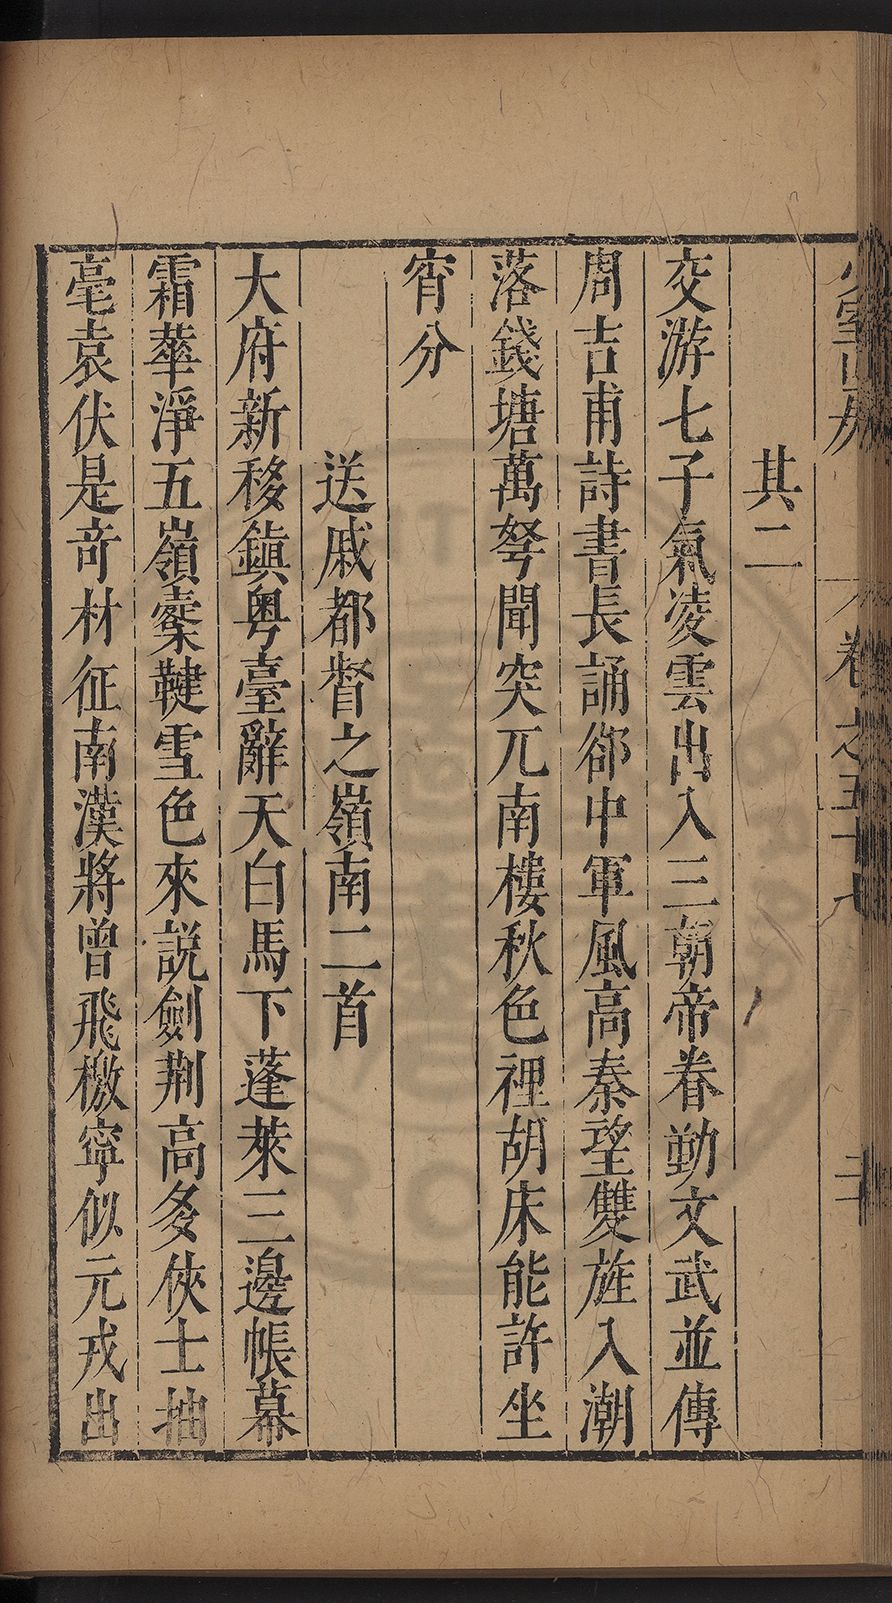 少室山房 卷之五十七 二
其二
交游七子氣凌雲出入三朝帝眷勤文武並傳
周吉甫詩書長誦郤中軍風高秦望雙旌入潮
落錢塘萬弩聞突兀南樓秋色裡胡床能許坐
宵分
送戚都督之嶺南二首
大府新移鎮粤臺辭天白馬下蓬萊三邊帳幕
霜華淨五嶺櫜鞬雪色來説劍荆高多俠士抽
毫袁伏是竒材征南漢將曾飛檄寧似元戎出